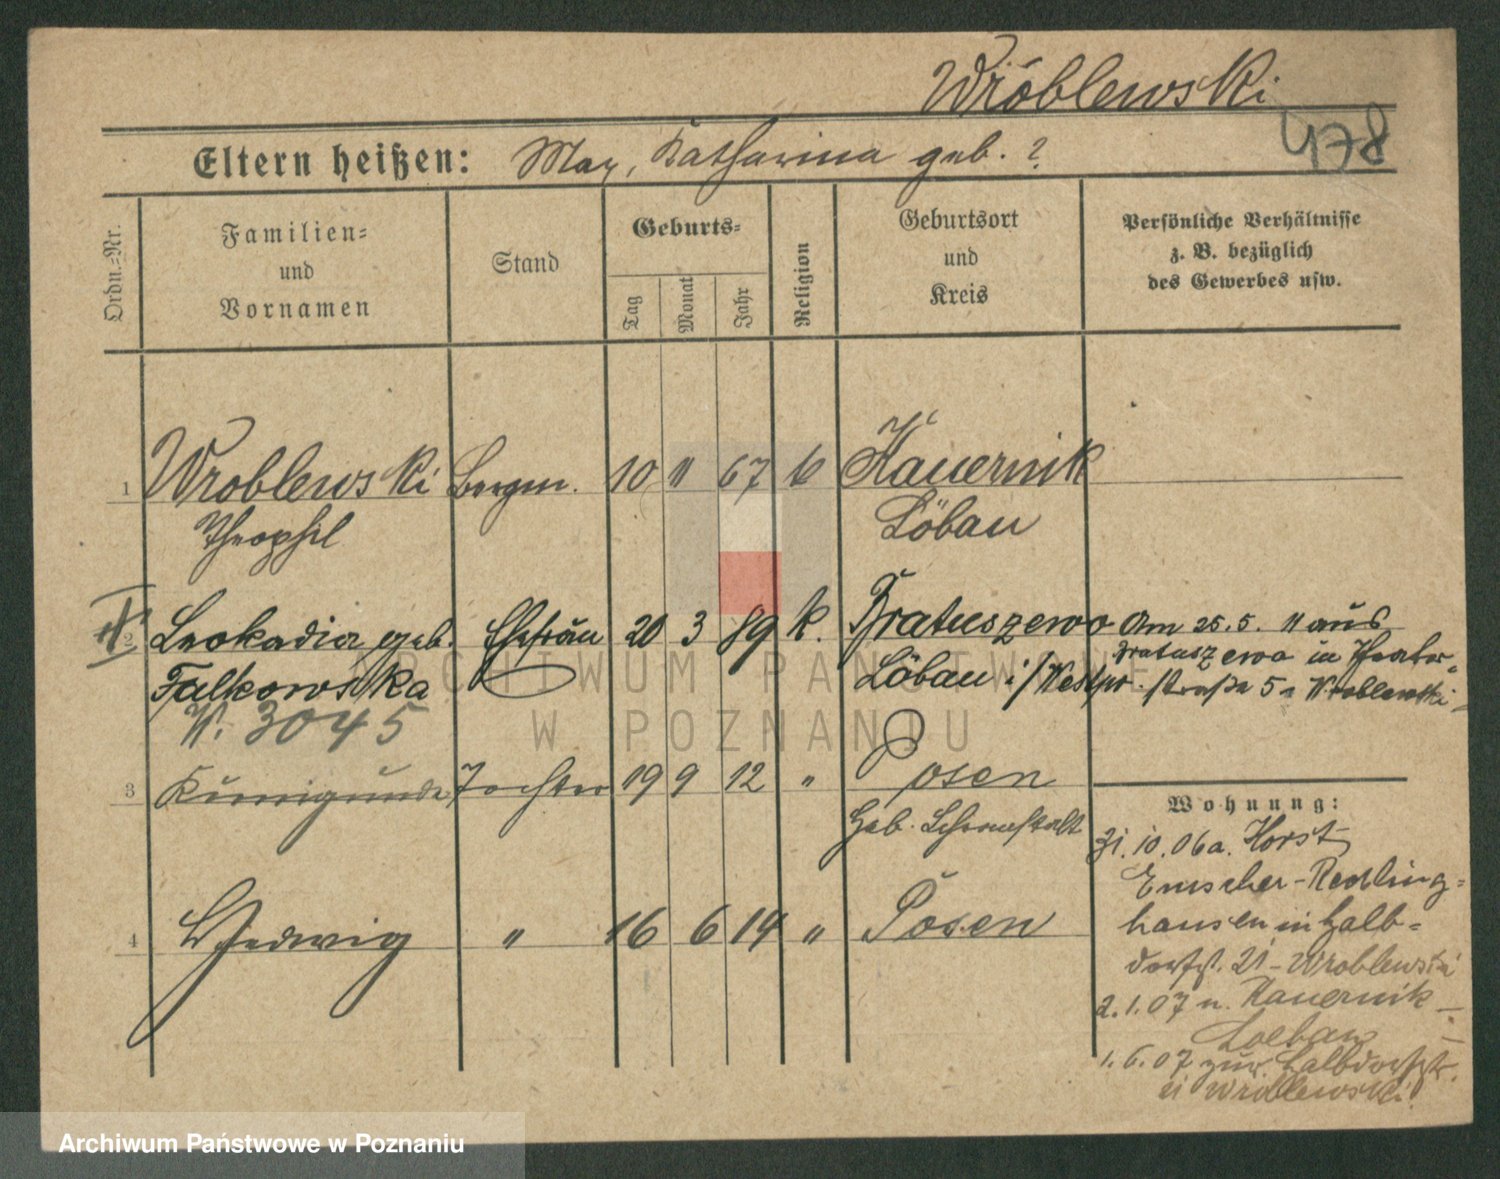 Wróblewski
478
Eltern heißen: Max, Katharina geb. ?
Ordn.-Nr.
Familien-
und
Vornamen
Stand
Geburts-
Tag
Monat
Jahr
Religion
Geburtsort
und
Kreis
Persönliche Verhältnisse
z. B. bezüglich
des Gewerbes usw.
1 Wroblewski Bergm. 10 11 67 k Kauernik
Theophil Löbau
2 Leokadia geb. Ehefrau 20 3 89 k. Bratuszewo Am 25.5. 11 aus
Bratuszewo in
Falkowska Löbau i/Westpr. straße 5 Wroblewski
3045
3 Kunigunde Tochter 19 9 12 " Posen
Geb.
Wohnung:
31. 10. 06 a. Horst
Emscher-Reckling-
4 Hedwig " 16 6 14 " Posen
hausen in Halb-
dorfst. 21 Wroblewski
2. 1. 07 n. Kauernik
Loebau
1. 6. 07 zur. Halbdorfstr.
Wroblewski
ARCHIWUM PAŃSTWOWE
W POZNANIU
Archiwum Państwowe w Poznaniu